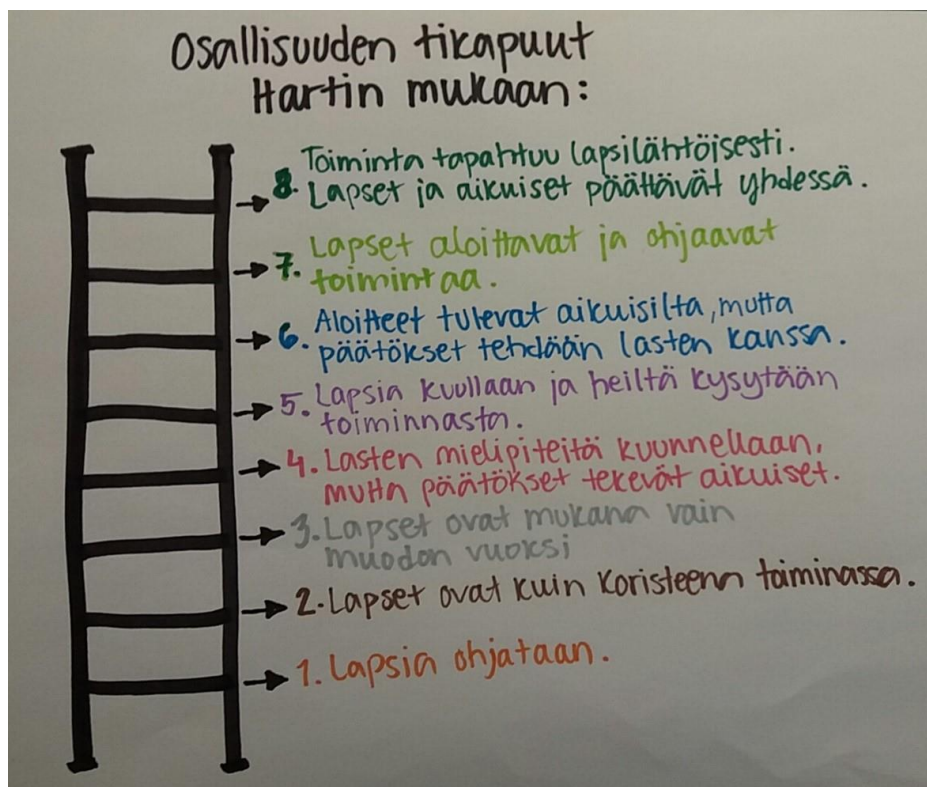 Osallisuuden tikapuut
Hartin mukaan:
8. Toiminta tapahtuu lapsilähtöisesti.
Lapset ja aikuiset päättävät yhdessä.
7. Lapset aloittavat ja ohjaavat
toimintaa.
6. Aloitteet tulevat aikuisilta, mutta
päätökset tehdään lasten kanssa.
5. Lapsia kuullaan ja heiltä kysytään
toiminnasta.
4. Lasten mielipiteitä kuunnellaan,
mutta päätökset tekevät aikuiset.
3. Lapset ovat mukana vain
muodon vuoksi
2. Lapset ovat kuin koristeena toiminassa.
1. Lapsia ohjataan.